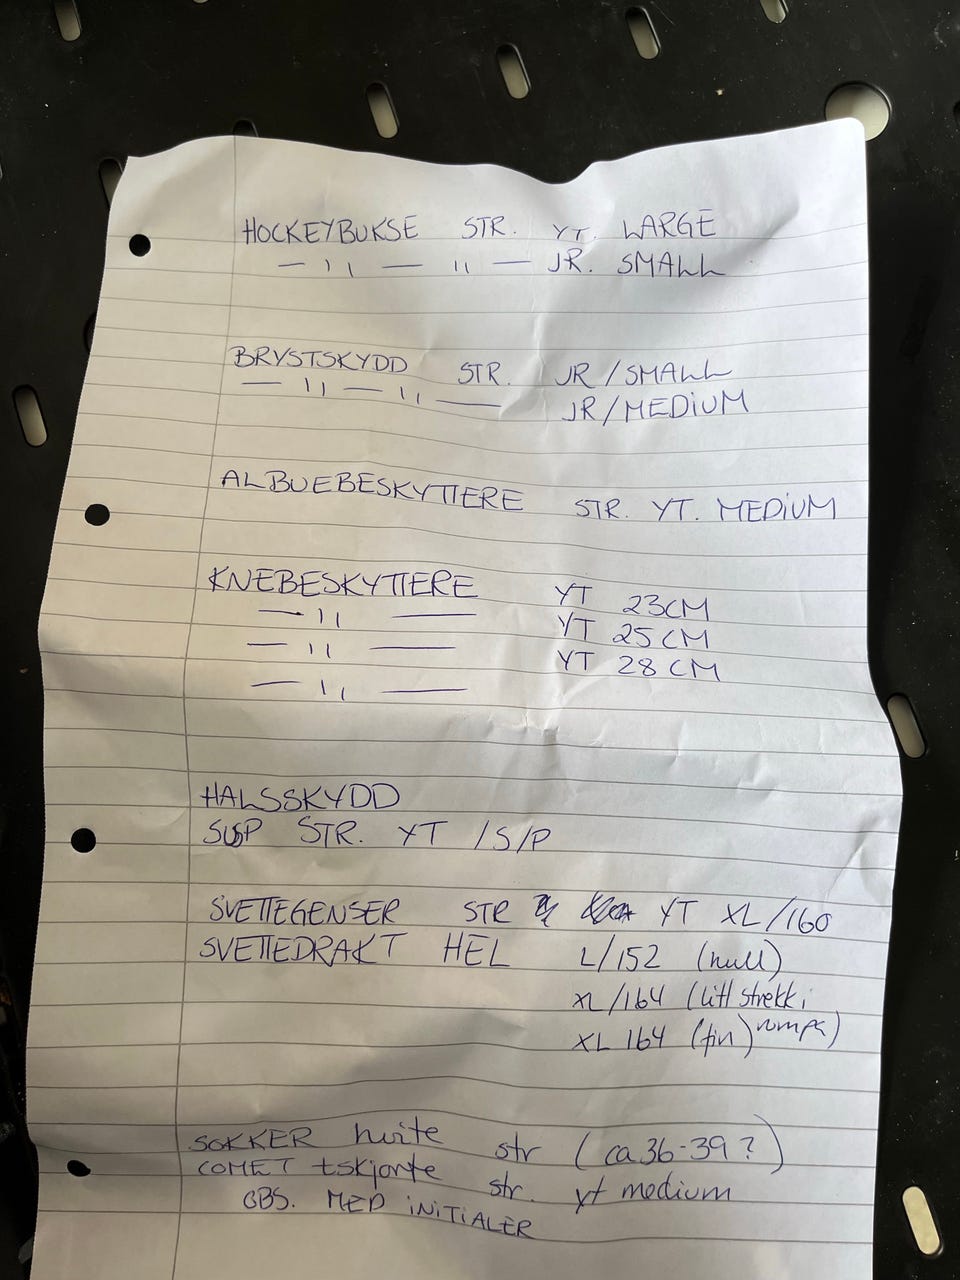 HOCKEYBUKSE STR. YT. LARGE
— 11 — 11 — JR. SMALL
BRYSTSKYDD STR. JR/SMALL
— 11 — 11 — JR/MEDIUM
ALBUEBESKYTTERE STR. YT. MEDIUM
KNEBESKYTTERE YT 23CM
— 11 — YT 25CM
— 11 — YT 28CM
— 11 —
HALSSKYDD
SUSP STR. YT /S/P
SVETTEGENSER STR YT XL/160
SVETTEDRAKT HEL L/152 (hull)
XL/164 (litt strekk i
XL 164 (fin) rumpa)
SOKKER hvite str (ca 36-39?)
COMET tskjorte str. yt medium
OBS. MED INITIALER